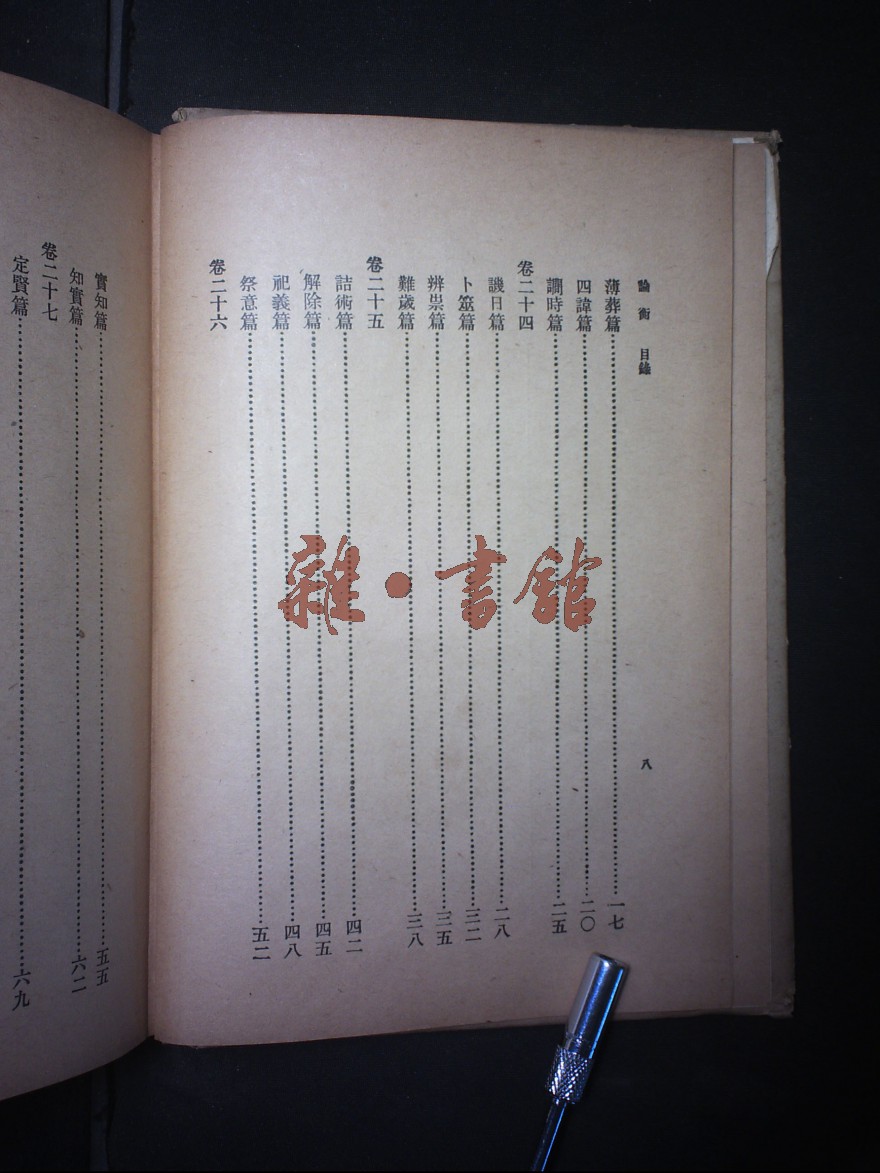 論衡 目錄 八
薄葬篇……一七
四諱篇……二〇
調時篇……二五
卷二十四
譏日篇……二八
卜筮篇……三二
辨祟篇……三五
難歲篇……三八
卷二十五
詰術篇……四二
解除篇……四五
祀義篇……四八
祭意篇……五二
卷二十六
實知篇……五五
知實篇……六二
卷二十七
定賢篇……六九
雜·書館